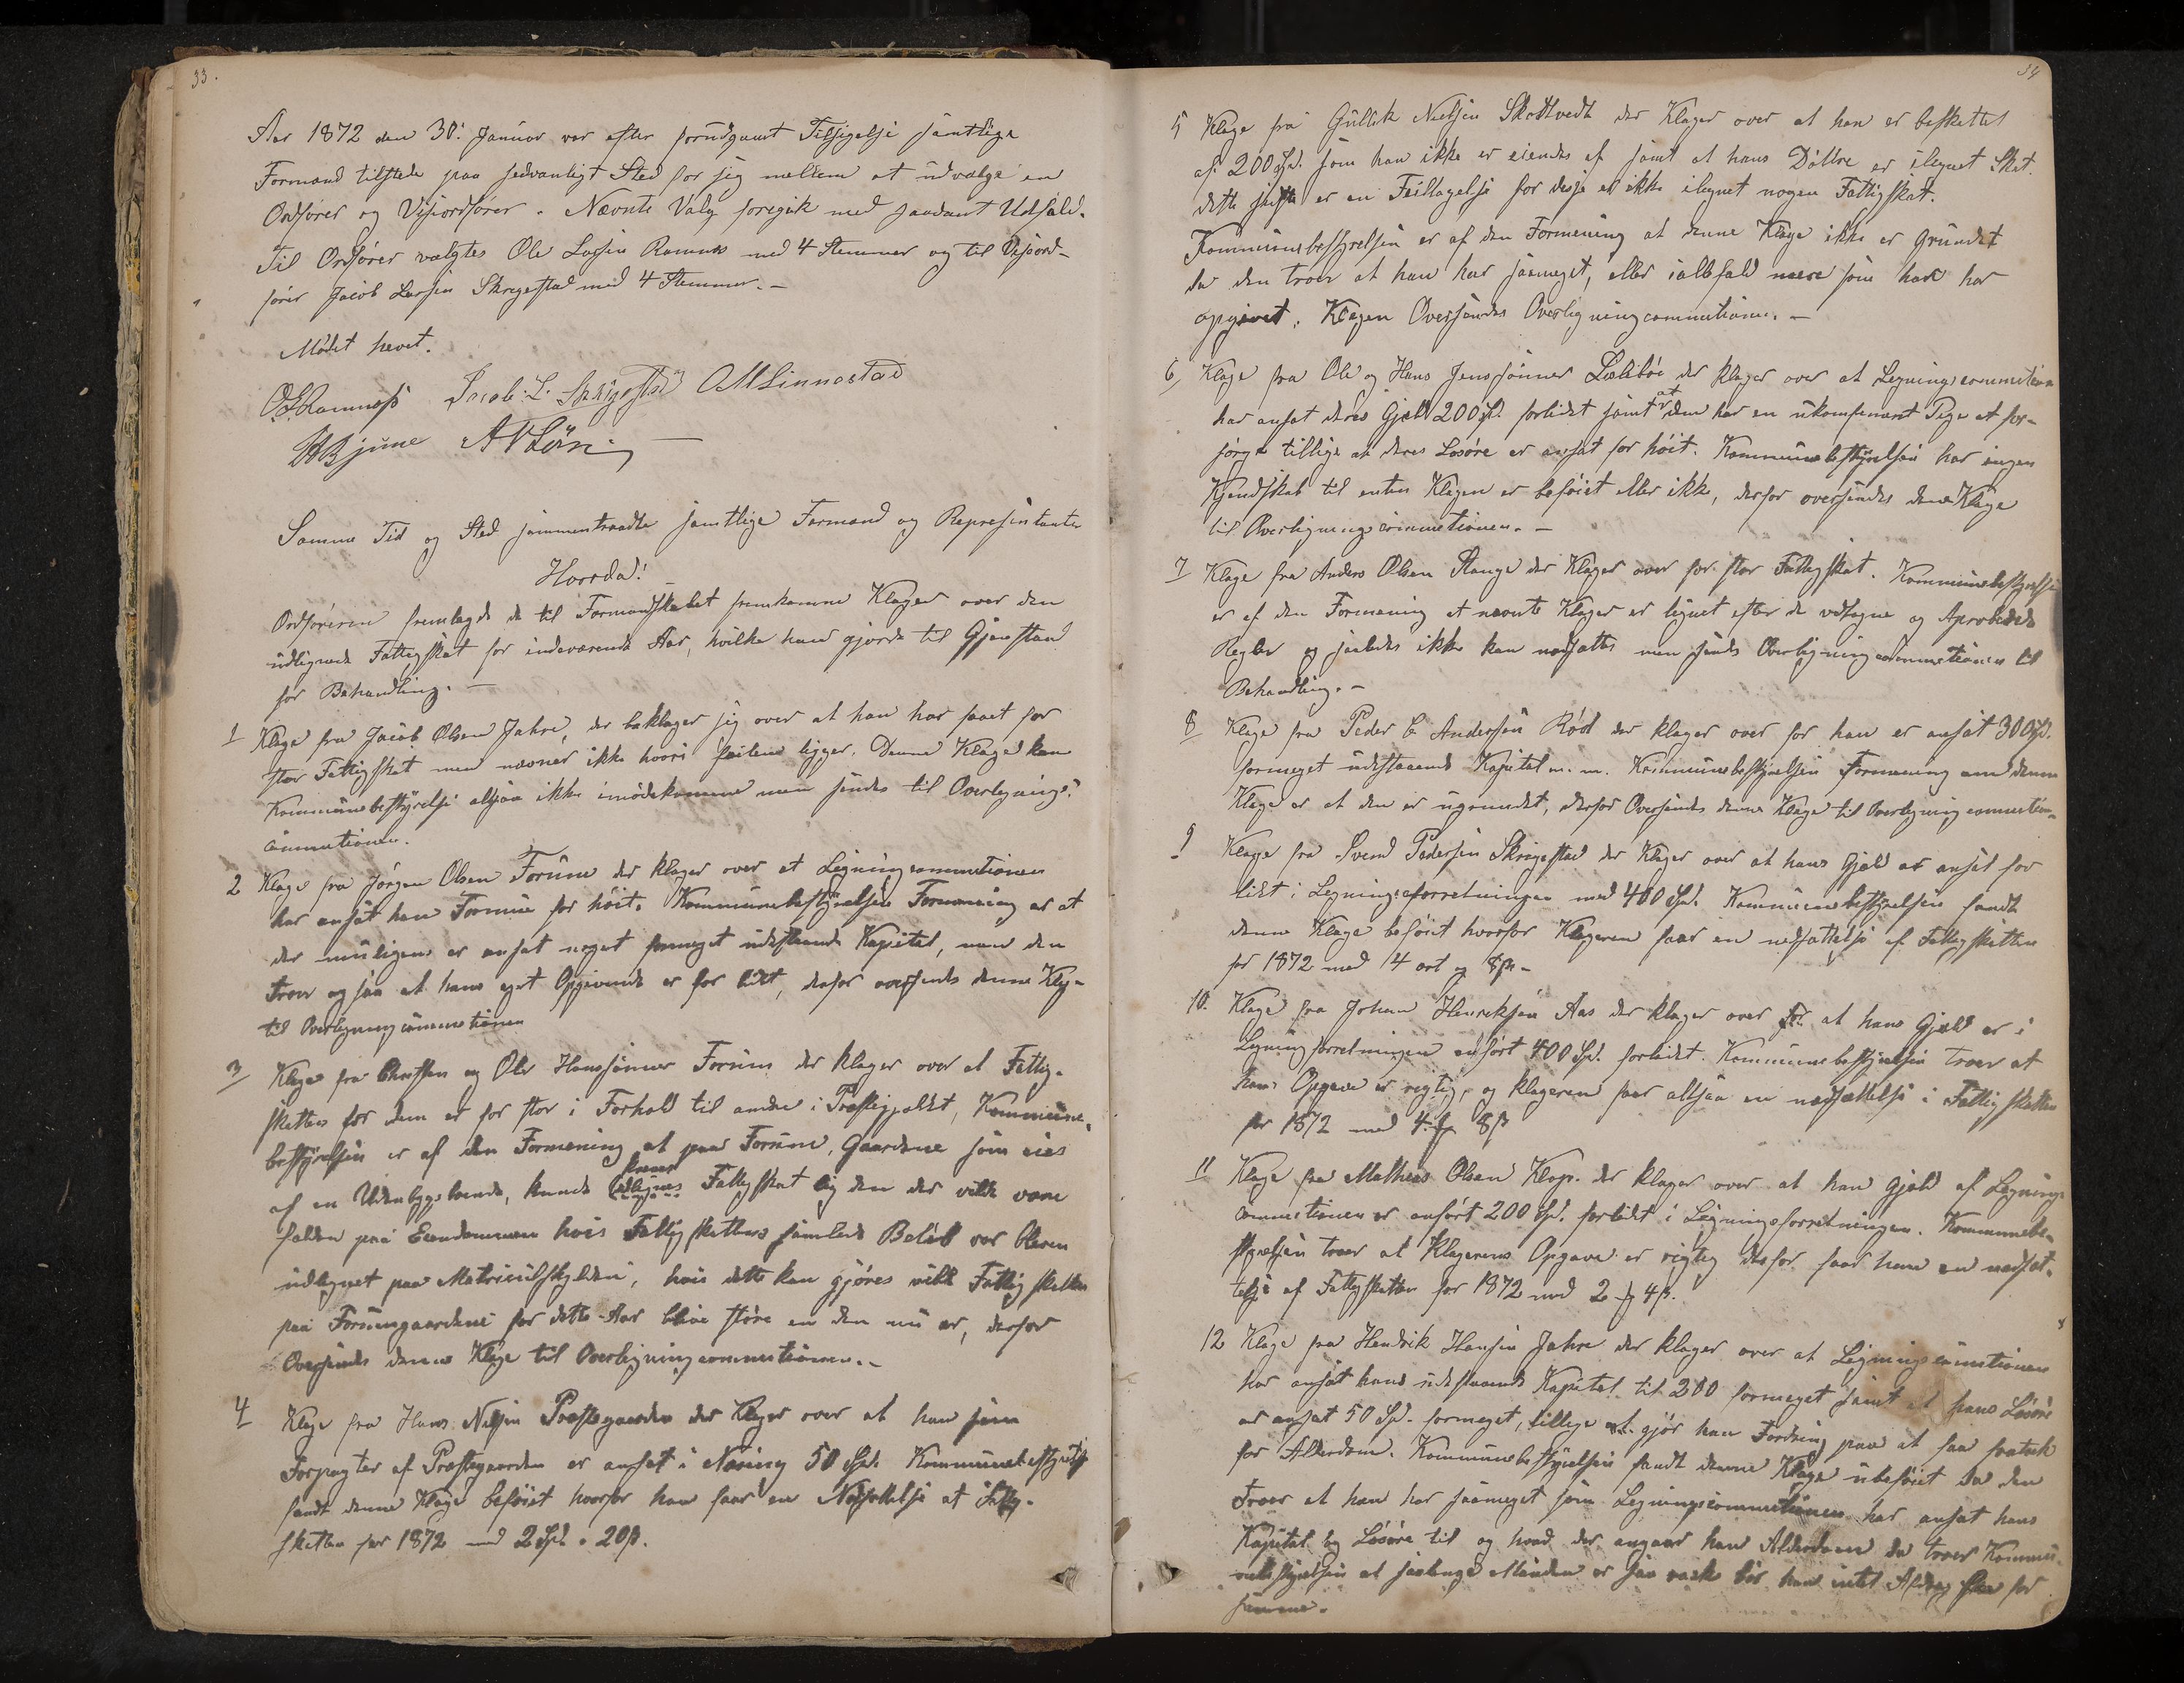 33.
Aar 1872 den 30. Januar var efter forudgaaet Tilsigelse samtlige
Formænd tilstede paa sedvanligt Sted for sig mellem at udvælge en
Ordfører og Visordfører. Nævnte Valg foregik med saadant Udfald.
Til Ordfører valgtes Ole Larsen Ramnes med 4 Stemmer og til Visord-
fører Jacob Larsen Skregestad med 4 Stemmer. -
Mødet hevet.
O.L. Ramnæs Jacob. L. Skrigestad A M Linnestad
H Bjune
Samme Tid og Sted sammentraadte samtlige Formænd og Representanter
Hvorda!
Ordføreren fremlagde de til Formandskabet fremkomne Klager over den
udlignede Fattigskat for indeværende Aar, hvilke han gjorde til Gjenstand
for Behandling. -
1 Klage fra Jacob Olsen Jahre, der beklager sig over at han har faaet for
stor Fattigskat men nævner ikke hvori feilene ligger. Denne Klage kan
Kommunebestyrelse altsaa ikke imødekomme men sendes til Overlignings-
commitionen.
2 Klage fra Jørgen Olsen Forum der klager over at Ligningscommitionen
har ansat han Formue for høit. Kommunebestyrelsen Formening er at
der muligens er ansat noget formeget udestaaende Kapital, men den
troer ogsaa at hans eget Opgivende er for lidt, derfor oversendes denne Klage
til Overligningcommitionen
3 Klage fra Christen og Ole Hanssønner Forum der klager over at Fattig-
skatten for dem er for stor i Forhold til andre i Præstegjældet, Kommune-
bestyrelsen er af den Formening at paa Forum, Gaardene som eies
af en Udenbygsboende, kunde udlignes Fattigskat og den der vilde være
falden paa Eiendommen hvis Fattigskattens samlede Beløb var bleven
udlignet paa Matriculskylden, hvis dette kan gjøres vill Fattigskatten
paa Forumgaardene for dette Aar blive større en den nu er, derfor
Oversendes denne Klage til Overligningcommitionen. -
4 Klage fra Hans Nilsen Præstegaarden der klager over at han som
Forpagter af Præstegaarden er ansat i Næring 50 Spd. Kommunebestyrelse
fandt denne Klage beføiet hvorfor han faar en Nedsættelse at Fattig-
skatten for 1872 med 2 Spd. 20 ß.
34
5 Klage fra Gullik Nielsen Skottvedt der Klager over at han er beskattet
af 200 Spd. som han ikke er eiendes af samt at hans Døttre er ilignet Skat.
dette sidste er en Feiltagelse for disse er ikke ilignet nogen Fattigskat.
Kommunebestyrelsen er af den Formening at denne Klage ikke er grundet
da den troer at han har saameget, eller ialtfald mere som han har
opgivet. Klagen Oversendes Overligningcommitionen. -
6, Klage fra Ole og Hans Jenssønner Lælibøe der klager over at Ligningscommitionen
har ansat deres Gjæld 200 Spd. forlidet samt at dem har en ukonfirmeret Pige at for-
sørge tillige at deres Løsøre er ansat for høit. Kommunebestyrelsen har ingen
Kjendskab til enten Klagen er beføiet eller ikke, derfor oversendes denne Klage
til Overligningscommitionen. -
7 Klage fra Anders Olsen Stange der Klager over for stor Fattigskat. Kommunebestyrelse
er af den Formening at nævnte Klager er lignet efter de vedtagne og Aprobede
Regler og saaledes ikke kan nedsættes men sendes Overligningcommitionen til
Behandling. -
8 Klage fra Peder C Andersen Rød der klager over for han er ansat 300 Spd.
formeget udestaaende Kapital m. m. Kommunebestyrelsens Formening om denne
Klage er at den er ugrundet, derfor Oversendes denne Klage til Overligningcommition-
9 Klage fra Svend Pedersen Skregestad der Klager over at hans Gjæld er ansat for
lidt i Ligningsforretningen med 400 Spd. Kommunebestyrelsen fandt
denne Klage beføiet hvorfor Klageren faar en nedsættelse af Fattigskatten
for 1872 med 4 ort og 8 ß -
10. Klage fra Johan Henriksen Aas der klager over for at hans Gjæld er i
Ligningforretningen anført 400 Spd. forlidet. Kommunebestyrelsen troer at
hans Opgave er rigtig, og klageren faar altsaa en nedsættelse i Fattigskatten
for 1872 med 4 8 ß
11 Klage fra Mathias Olsen Klop. der klager over at han gjæld af Lignings
commitionen er anført 200 Spd. forlidet i Ligningsforretningen. Kommunebe-
styrelsen troer at Klagerens Opgave er rigtig derfor faar han en nedsæt-
telse af Fattigskatten for 1872 med 2 4 ß.
12 Klage fra Hendrik Hansen Jahre der klager over at Ligningscomitionen
har ansat hans udestaaende Kapital til 200 formeget samt at hans Løsøre
er ansat 50 Spd. formeget, tillige at gjør han Fordring paa at faa fratræk
for Alderdom. Kommunebestyrelsen fandt denne Klage ubeføiet da den
troer at han har saameget som Ligningscommitionen har ansat hans
Kapital og Løsøre til og hvad der angaar han Alderdom da troer Kommu-
nebestyrelsen at saalenge Manden er saa rask bør han intet Afdrag faae for
samme.